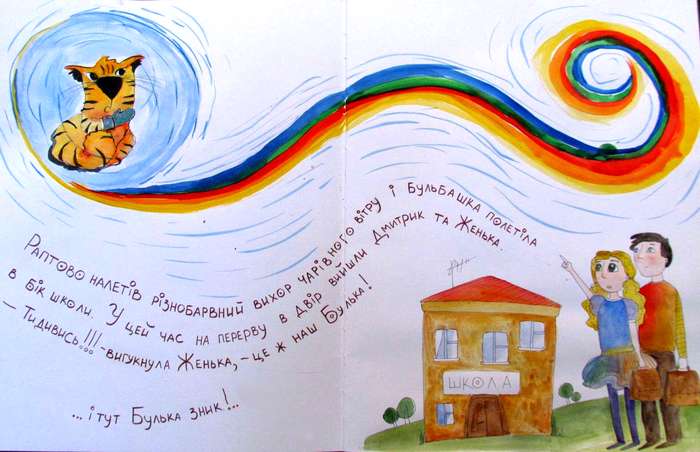 Раптово налетів різнобарвний вихор чарівного вітру і Бульбашка полетіла
в бік школи. У цей час на перерву в двір вийшли Дмитрик та Женька.
– Тидивись!!! -вигукнула Женька, – це ж наш Булька!
...і тут Булька зник!..
ШКОЛА